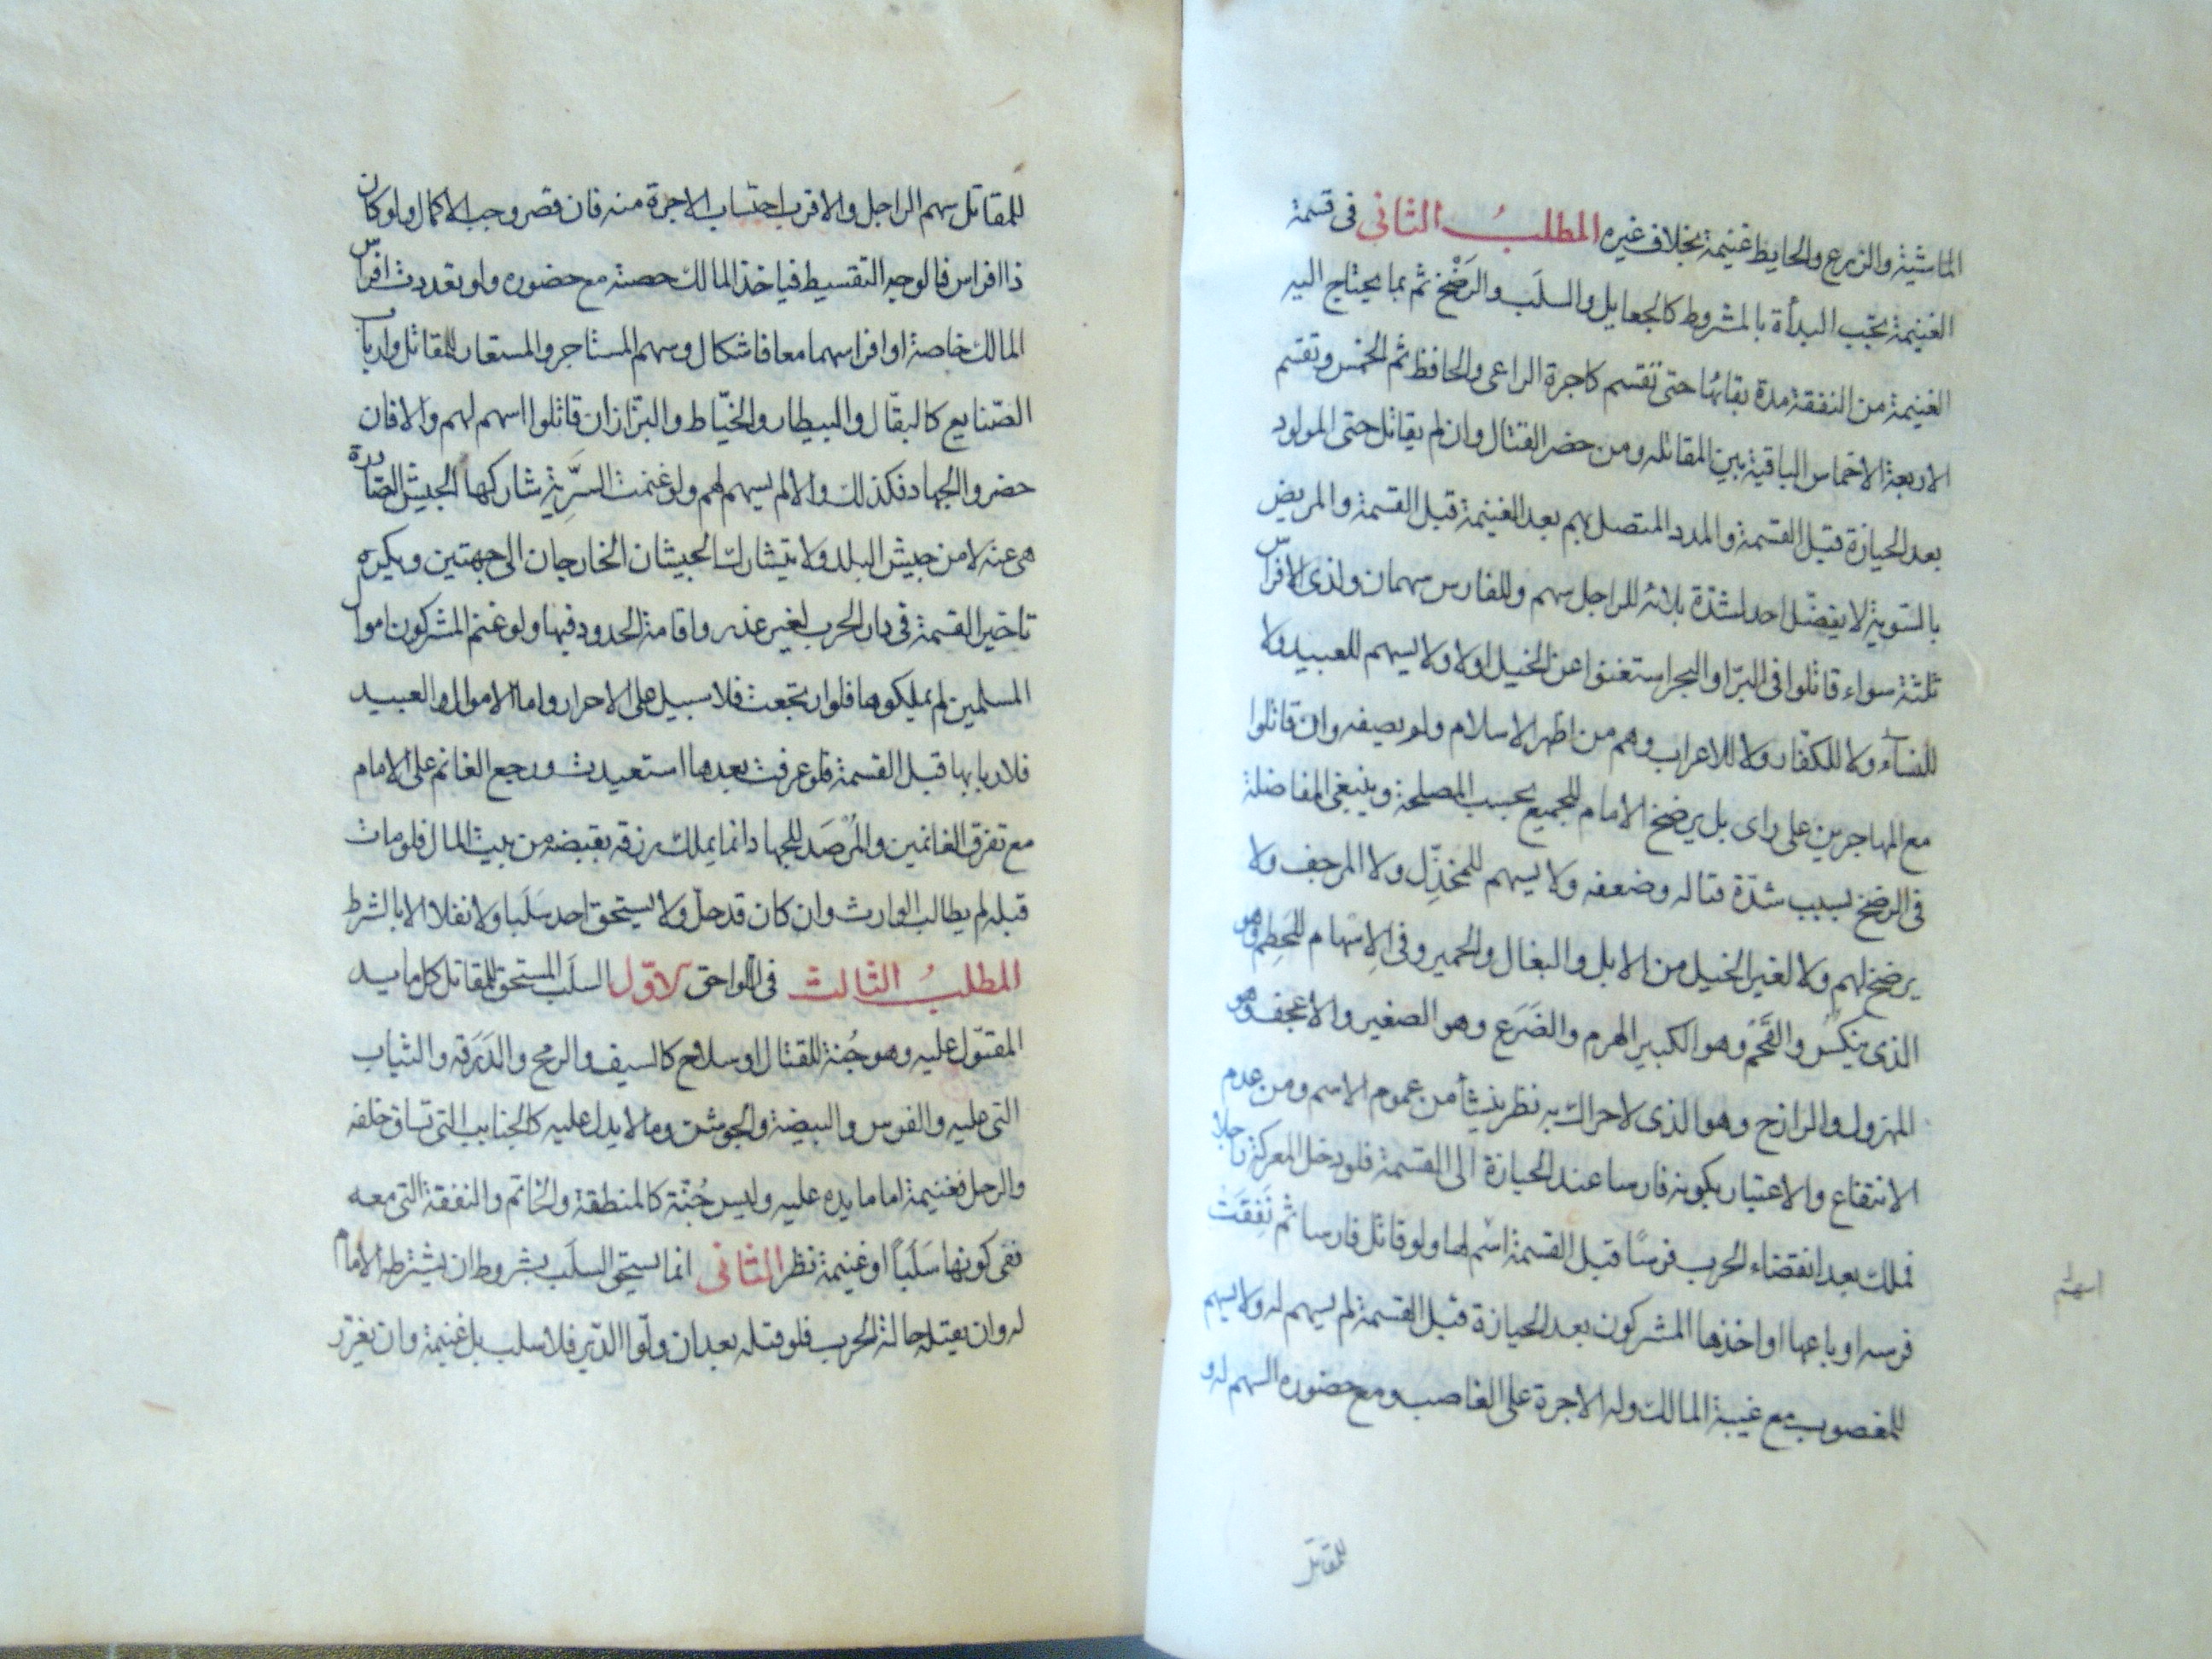 الماشية والزرع والحايط غنيمة بخلاف غيره المطلبُ الثاني في قسمة
الغنيمة يجب البدأة بالمشروط كالجعايل والسلَب والرَضْخ ثم بما يحتاج اليه
الغنيمة من النفقة مدة بقائها حتى تقسم كاجرة الراعى والحافظ ثم الخمس وتقسم
الاربعة الاخماس الباقية بين المقاتله ومن حضر القتال وان لم يقاتل حتى المولود
بعد الحيازة قبل القسمة والمدد المتصل بهم بعد الغنيمة قبل القسمة والمريض
بالسّوية لا يفضّل احد لشدّة بلائه للراجل سهم وللفارس سهمان ولذى الافراس
ثلثة سواء قاتلوا فى البرّ او البحر استغنوا عن الخيل اولا ولا يسهم للعبيد ولا
للنساء ولا للكفّار ولا للاعراب وهم من اظهر الاسلام ولم يصفه وان قاتلوا
مع المهاجرين على راى بل يرضخ الامام للجميع بحسب المصلحة وينبغى المفاضلة
فى الرضخ بسبب شدّة قتاله وضعفه ولا يسهم للمخذّل ولا المرجف ولا
يرضخ لهم ولا لغير الخيل من الابل والبغال والحمير وفى الاِسْهام للحَطِم وهو
الذى ينكسُ والقَحْم وهو الكبير الهرم والضَرَع وهو الصغير والاعجف وهو
المهزول والرازح وهو الذى لا حراك به نظر ينشأ من عموم الاسم ومن عدم
الانتفاع والاعتبار بكونه فارسا عند الحيازة الى القسمة فلو دخل المعركة راجلا
فملك بعد انقضاء الحرب فرسًا قبل القسمة اسْهم لها ولو قاتل فارسا ثم نَفِقَت
فرسه او باعها او اخذها المشركون بعد الحيازة قبل القسمة لم يسهم له ولا يسهم
للمغصوب مع غيبة المالك وله الاجرة على الغاصب ومع حضوره السهم له و
للمقاتل
للمقاتل سهم الراجل والاقرب احتساب الاجرة منه فان قصر وجب الاكمال ولو كان
ذا افراس فالوجه التقسيط فياخذ المالك حصته مع حضوره ولو تعددت افراس
المالك خاصة او افراسهما معا فاشكال وسهم المستاجر والمستعار للمقاتل وارباب
الصّنايع كالبقّال والبيطار والخيّاط والبزّاز ان قاتلوا اسهم لهم والا فان
حضروا للجهاد فكذلك والا لم يسهم لهم ولو غنمت السَّرِية شاركها الجيش الصّادرة
هى عنه لا من جيش البلد ولا يتشارك الجيشان الخارجان الى جهتين ويكره
تاخير القسمة فى دار الحرب لغير عذر واقامة الحدود فيها ولو غنم المشركون اموال
المسلمين لم يملكوها فلو ارتجعت فلا سبيل على الاحرار واما الاموال والعبيد
فلاربابها قبل القسمة فلو عرفت بعدها استعيدت ورجع الغانم على الامام
مع تفرق الغانمين والمُرْصَد للجهاد انما يملك رزقه بقبضه من بيت المال فلو مات
قبله لم يطالب الوارث وان كان قد حلّ ولا يستحق احد سَلَبا ولا نفلا الا بالشرط
المطلبُ الثالث فى اللواحق الاوّل السلَب المستحق للمقاتل كل ما يد
المقتول عليه وهو جُنة للقتال او سلاح كالسيف والرمح والدَرَقه والثياب
التى عليه والفرس والبيضة والجوشن وما لا يد له عليه كالجنايب التى تساق خلفه
والرحل فغنيمة اما ما يده عليه وليس جُنّة كالمنطقة والخاتم والنفقة التى معه
ففى كونها سَلَبًا او غنيمة نظر الثانى انما يستحق السلَب بشروط ان يشترطه الامام
له وان يقتله حالة الحرب فلو قتله بعد ان ولّوا الدّبر فلا سلب بل غنيمة وان يغرّر